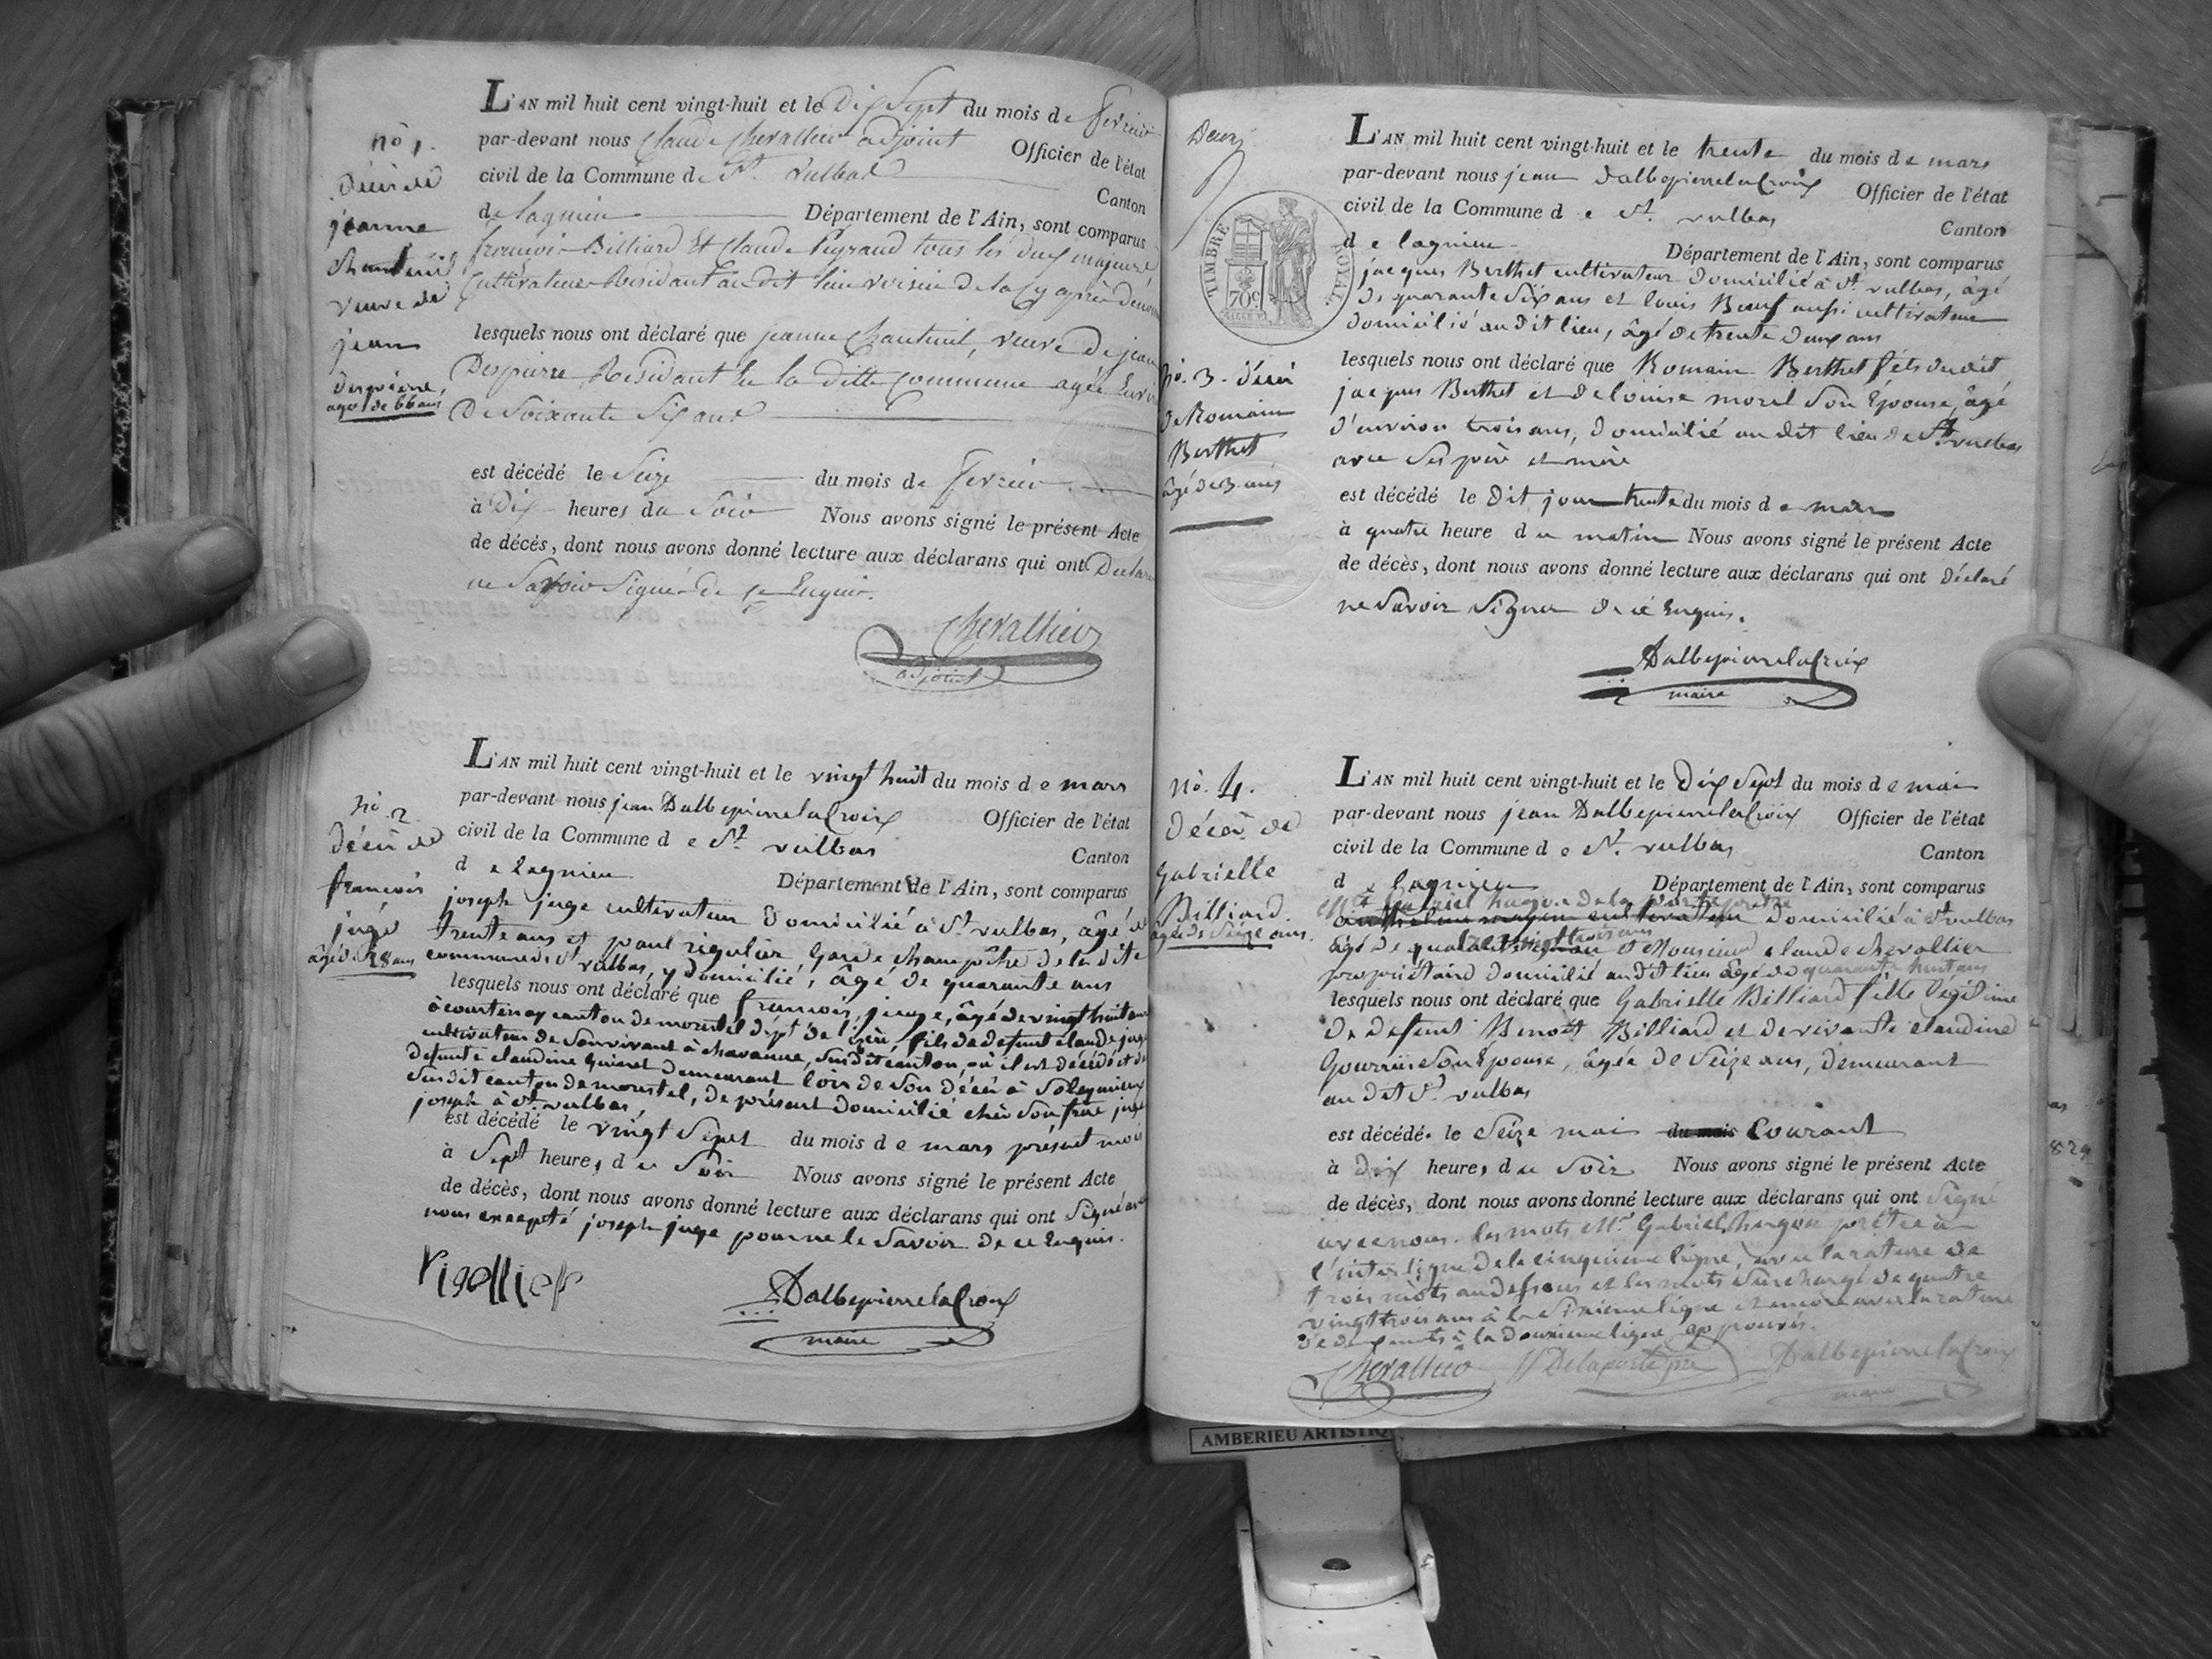 nº 1.
décès de
jeanne
chanteuil
veuve de
jean
despierre,
agée de 66 ans
L'AN mil huit cent vingt-huit et le Dix Sept du mois de fevrier
par-devant nous Claude Chevallier adjoint Officier de l'état
civil de la Commune de St. Vulbas Canton
de Lagnieu Département de l'Ain, sont comparus
françois Billiard Et Claude tous les deux majeurs
Cultivateurs Résidant au dit lieu voisin de la Cy après
lesquels nous ont déclaré que jeanne Chanteuil, veuve de jean
Despierre, Résidant En la ditte Commune agée
De Soixante Six ans
est décédé le Seize du mois de fevrier
à Dix heures du Soir Nous avons signé le présent Acte
de décès, dont nous avons donné lecture aux déclarans qui ont
ne Savoir Signer de ce Enquis.
Chevallier
adjoint
nº 2
décès de
françois
juge
âgé de 28 ans
L'AN mil huit cent vingt-huit et le vingt huit du mois de mars
par-devant nous jean Dalbepierrelacroix Officier de l'état
civil de la Commune de St. vulbas Canton
de lagnieu Département de l'Ain, sont comparus
joseph juge cultivateur Domicilié à St. vulbas, âgé de
trente ans et paul rigolier Garde champêtre de la dite
commune de St. vulbas, y domicilié, âgé de quarante ans
lesquels nous ont déclaré que françois juge, âgé de vingt huit ans
à courtenay canton de morestel dépt. de l'isère, fils de defunt claude juge
cultivateur de Son vivant à charanne, Susdit canton, où il est décédé et de
defunte claudine Guinet demeurant lors de Son décès à Soleymieu
Susdit canton de morestel, de présent domicilié chès Son frère juge
joseph à St. vulbas,
est décédé le vingt Sept du mois de mars présent mois
à Sept heures du Soir Nous avons signé le présent Acte
de décès, dont nous avons donné lecture aux déclarans qui ont Signé avec
nous excepté joseph juge pour ne le Savoir de ce Enquis.
Dalbepierrelacroix
maire
Deux
TIMBRE ROYAL.
70c
nº. 3. décès
de Romain
Berthet
âgé de 3 ans
L'AN mil huit cent vingt-huit et le trente du mois de mars
par-devant nous jean Dalbepierrelacroix Officier de l'état
civil de la Commune de St. vulbas Canton
de lagnieu Département de l'Ain, sont comparus
jacques Berthet cultivateur Domicilié à St. vulbas, âgé
de quarante Six ans et louis Bœuf aussi cultivateur
domicilié audit lieu, âgé de trente Deux ans
lesquels nous ont déclaré que Romain Berthet fils dudit
jacques Berthet et de louise morel Son Épouse, âgé
d'environ trois ans, domicilié au dit lieu de St. vulbas
avec Ses père et mère
est décédé le dit jour trente du mois de mars
à quatre heure du matin Nous avons signé le présent Acte
de décès, dont nous avons donné lecture aux déclarans qui ont déclaré
ne Savoir Signer de ce Enquis.
Dalbepierrelacroix
maire
nº. 4.
Décès de
Gabrielle
Billiard.
âgée de Seize ans.
L'AN mil huit cent vingt-huit et le Dix Sept du mois de mai
par-devant nous jean Dalbepierrelacroix Officier de l'état
civil de la Commune de St. vulbas Canton
de lagnieu Département de l'Ain, sont comparus
Mr. Gabriel de la porte prêtre
cultivateur domicilié à St. vulbas
âgé de quatre vingt trois ans et Monsieur claude chevallier
propriétaire domicilié au dit lieu âgé de quarante huit ans
lesquels nous ont déclaré que Gabrielle Billiard fille légitime
de defunt Benoît Billiard et de vivante claudine
Son Épouse, âgée de Seize ans, demeurant
au dit St. vulbas
est décédé. le Seize mai du mois Courant
à dix heures du Soir Nous avons signé le présent Acte
de décès, dont nous avons donné lecture aux déclarans qui ont Signé
avec nous. les mots Mr. Gabriel prêtre à
l'interligne de la cinquieme ligne, avec la rature de
trois mots au dessous et les mots Surchargé de quatre
vingt trois ans à la Sixieme ligne et encore avec la rature
de deux mots à la douzieme ligne approuvés.
Chevallier Delaporte ptre Dalbepierrelacroix
maire
829
AMBERIEU ARTISTIQ